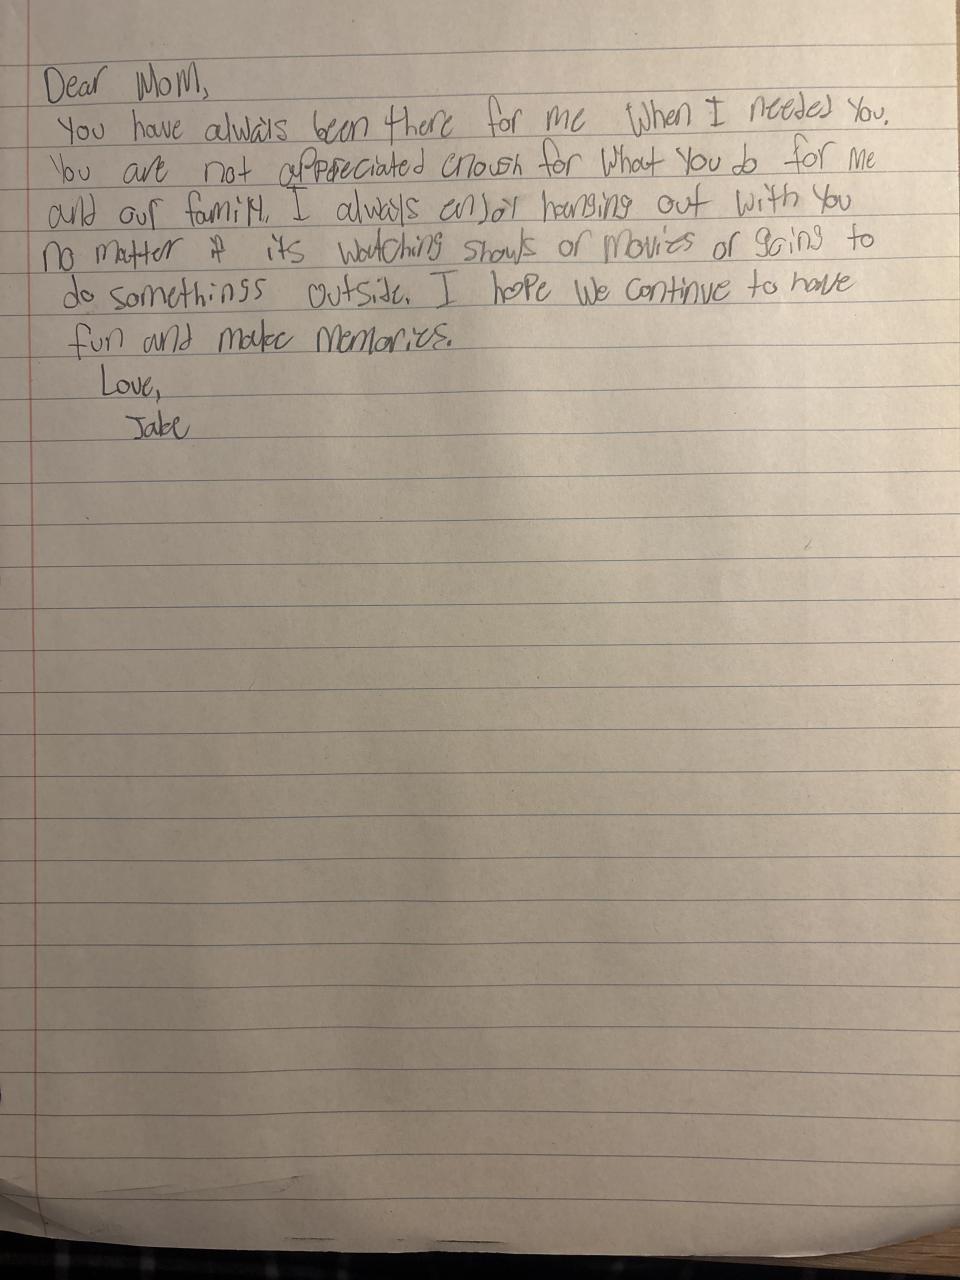 Dear Mom,
You have always been there for me when I needed you.
You are not appreciated enough for what you do for me
and our family. I always enjoy hanging out with you
no matter if its watching shows or movies or going to
do somethings outside. I hope we continue to have
fun and make memories.
Love,
Jake